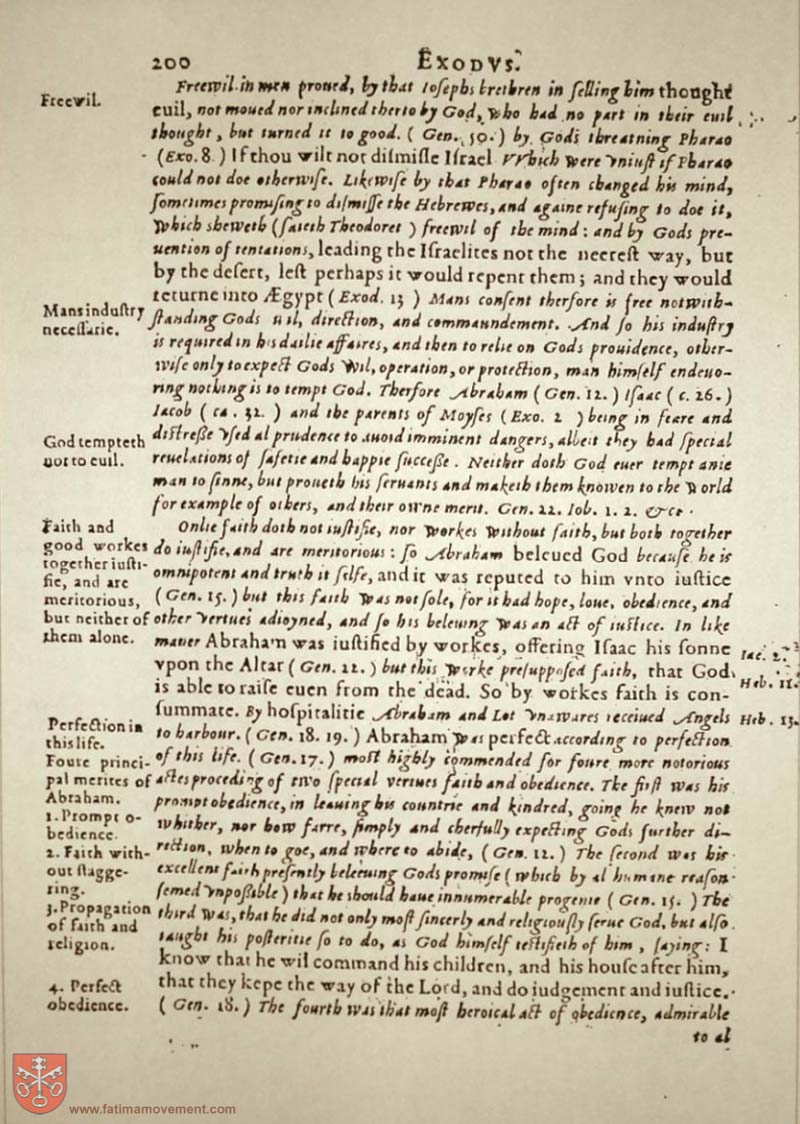 200 EXODVS.
Freewil.
Freewil in men proued, by that Iosephs breibren in selling him thought
euil, not moued nor inclined therto by God, who had no part in their euil
thought, but turned it to good. (Gen. 50.) by Gods threatning Pharao
(Exo. 8.) If thou wilt not dismisse Israel VVhich were vniust if Pharao
could not doe otherwise. Likewise by that Pharao often changed his mind,
sometimes promising to dismisse the Hebrewes, and againe refusing to doe it,
which sheweth (saieth Theodoret) freewil of the mind: and by Gods pre-
uention of tentations, leading the Israelites not the neerest way, but
by the desert, lest perhaps it would repent them; and they would
returne into Ægypt (Exod. 13) Mans consent therfore is free notwith-
Mans industry
necessarie.
standing Gods wil, direction, and commaundement. And so his industry
is required in his dailie affaires, and then to relie on Gods prouidence, other-
wise only to expect Gods wil, operation, or protection, man himself endeuo-
ring nothing is to tempt God. Therfore Abraham (Gen. 12.) Isaac (c. 26.)
Iacob (ca. 32.) and the parents of Moyses (Exo. 2) being in feare and
distresse vsed al prudence to auoid imminent dangers, albeit they had special
God tempteth
not to euil.
reuelations of safetie and happie successe. Neither doth God euer tempt anie
man to sinne, but proueth his seruants and maketh them knowen to the world
for example of others, and their owne merit. Gen. 22. Iob. 1. 2. &c.
Faith and
good workes
together iusti-
fie, and are
meritorious,
but neither of
them alone.
Onlie faith doth not iustifie, nor workes without faith, but both together
do iustifie, and are meritorious: so Abraham beleued God because he is
omnipotent and truth it selfe, and it was reputed to him vnto iustice
(Gen. 15.) but this faith was not sole, for it had hope, loue, obedience, and
other vertues adioyned, and so his beleuing was an act of iustice. In like
maner Abraham was iustified by workes, offering Isaac his sonne
Iac. 2.
vpon the Altar (Gen. 22.) but this worke presupposed faith, that God
Heb. 11.
is able to raise euen from the dead. So by workes faith is con-
summate. By hospitalitie Abraham and Lot vnawares receiued Angels
Heb. 13.
Perfection in
this life.
to harbour. (Gen. 18. 19.) Abraham was perfect according to perfection
of this life. (Gen. 17.) most highly commended for foure more notorious
Foure princi-
pal merites of
Abraham.
actes proceding of two special vertues faith and obedience. The first was his
1. Prompt o-
bedience.
prompt obedience, in leauing his countrie and kindred, going he knew not
whither, nor how farre, simply and cherfully expecting Gods further di-
2. Faith with-
out stagge-
ring.
rection, when to goe, and where to abide, (Gen. 12.) The second was his
excellent faith presently beleeuing Gods promise (which by al humane reason
semed vnpossible) that he should haue innumerable progenie (Gen. 15.) The
3. Propagation
of faith and
religion.
third was, that he did not only most sincerly and religiously serue God, but also
taught his posteritie so to do, as God himself testifieth of him, saying: I
know that he wil command his children, and his house after him,
that they kepe the way of the Lord, and do iudgement and iustice.
4. Perfect
obedience.
(Gen. 18.) The fourth was that most heroical act of obedience, admirable
to al
www.fatimamovement.com